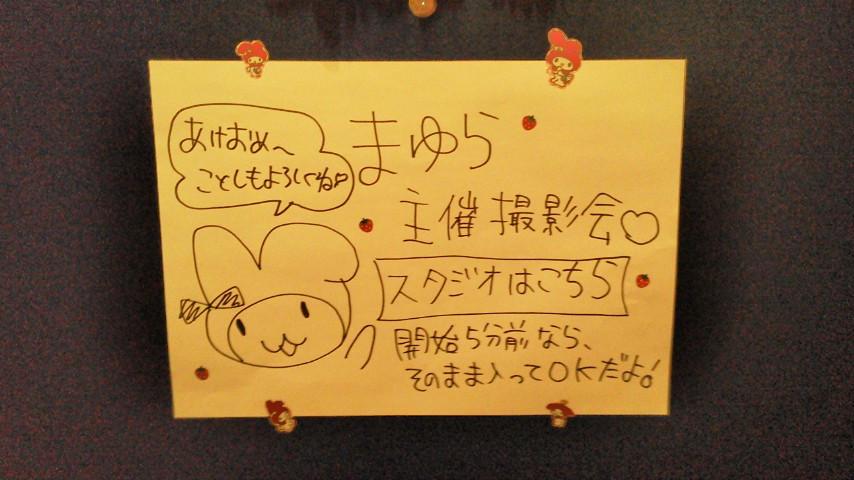 あけおめ〜
ことしもよろしくね♪
まゆら
主催撮影会♡
スタジオはこちら
開始5分前なら、
そのまま入ってOKだよ!